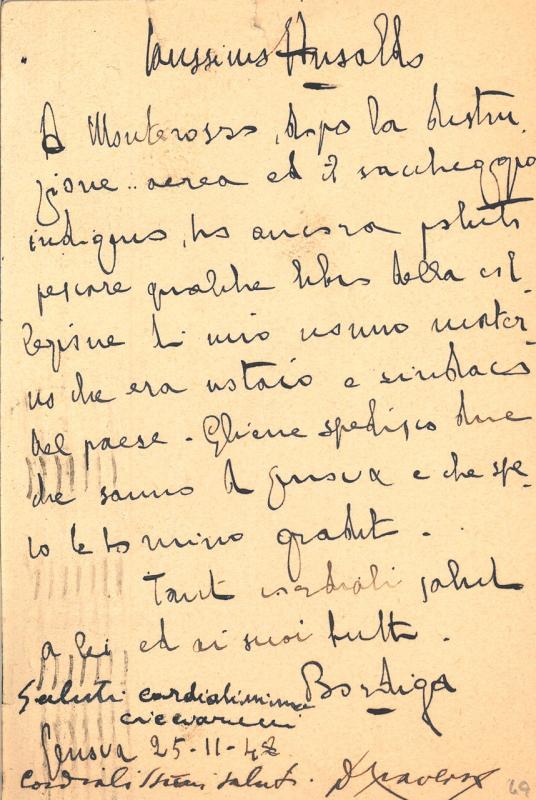 Ansaldo
A Monterosso, dopo la distru
zione aerea ed il saccheggio
indigeno, ho ancora potuto
pescare qualche libro della col
legione di mio nonno mater
no che era notaio e sindaco
del paese. Gliene spedisco due
che sanno di Genova e che spe-
ro le torni­no gradit.
Tant cordiali salut
a lei ed ai suoi tutt.
Bordiga
Saluti cordialissimi
Genova 25-11-42
Cordialissimi saluti.
69